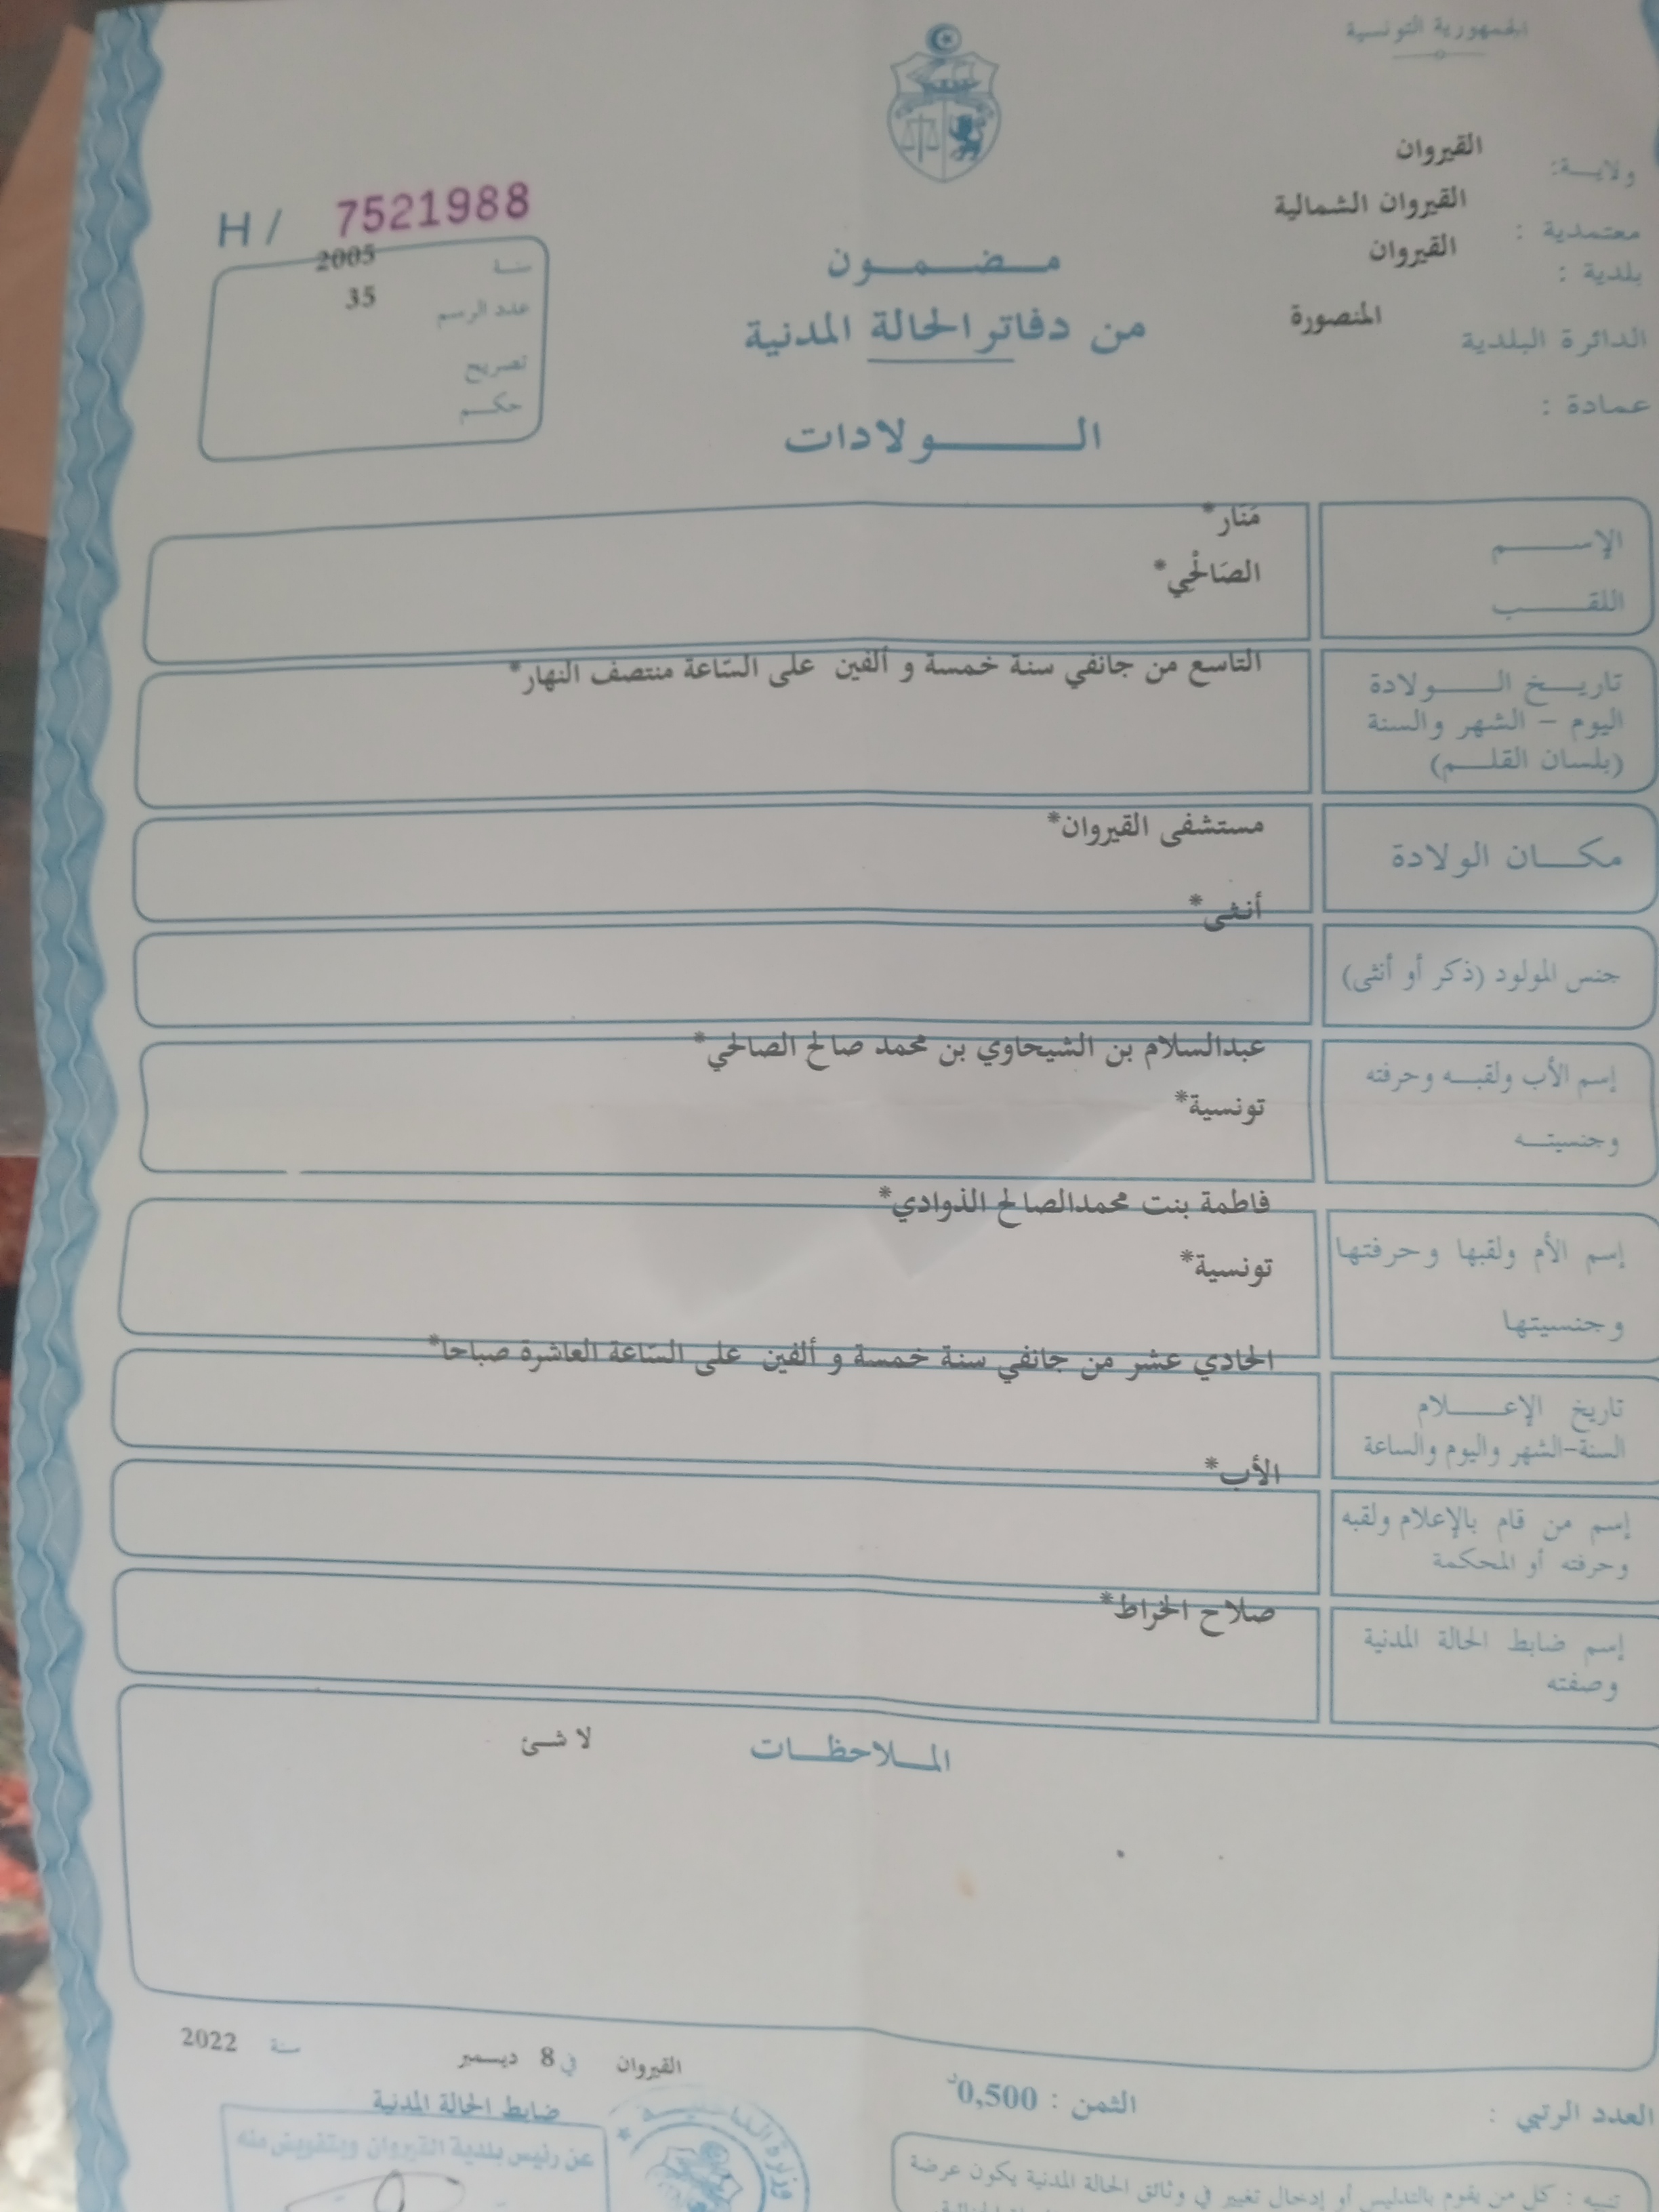 الجمهورية التونسية
ولايـــة: القيروان
معتمدية : القيروان الشمالية
بلدية : القيروان
الدائرة البلدية المنصورة
عمادة :
مـضـمـون
من دفاتر الحالة المدنية
الـولادات
H / 7521988
سنة 2005
عدد الرسم 35
تصريح
حكم
الإســـم مَنَار*
اللقـــب الصَالْحِي*
تاريخ الـولادة
اليوم – الشهر والسنة
(بلسان القلـم)
التاسع من جانفي سنة خمسة و ألفين على السّاعة منتصف النهار*
مكـان الولادة مستشفى القيروان*
جنس المولود (ذكر أو أنثى) أنثى*
إسم الأب ولقبـه وحرفته عبدالسلام بن الشيحاوي بن محمد صالح الصالحي*
وجنسيتـه تونسية*
إسم الأم ولقبها وحرفتها فاطمة بنت محمدالصالح الذوادي*
وجنسيتها تونسية*
تاريخ الإعـــلام
السنة-الشهر واليوم والساعة
الحادي عشر من جانفي سنة خمسة و ألفين على السّاعة العاشرة صباحا*
إسم من قام بالإعلام ولقبه
وحرفته أو المحكمة
الأب*
إسم ضابط الحالة المدنية
وصفته
صلاح الخراط*
الملاحظـات لا شئ
القيروان في 8 ديسمبر سنة 2022
ضابط الحالة المدنية
عن رئيس بلدية القيروان وبتفويض منه
العدد الرتبي :
الثمن : 0,500د
تنبيه : كل من يقوم بالتدليس أو إدخال تغيير في وثائق الحالة المدنية يكون عرضة